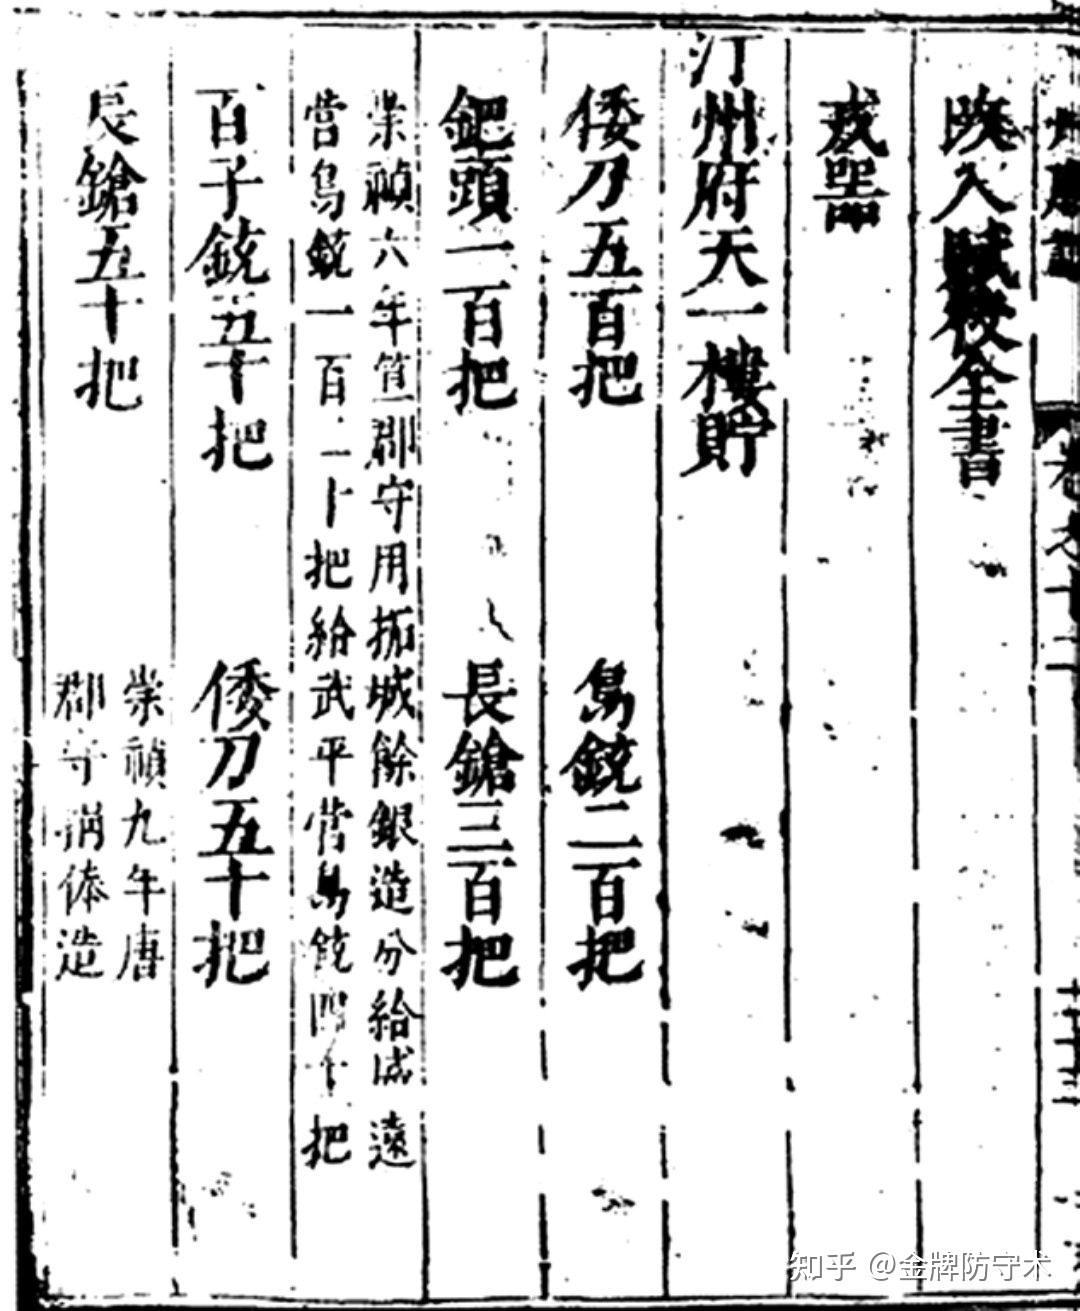 州府
卷之十二
入賦役全書
戎器
汀州府天一樓貯
倭刀五百把 鳥銃二百把
鈀頭一百把 長鎗三百把
崇禎六年笪郡守用拓城餘銀造分給威遠
營鳥銃一百二十把給武平營鳥銃四十把
百子銃五十把 倭刀五十把
長鎗五十把
崇禎九年唐
郡守捐俸造
知乎 @金牌防守术